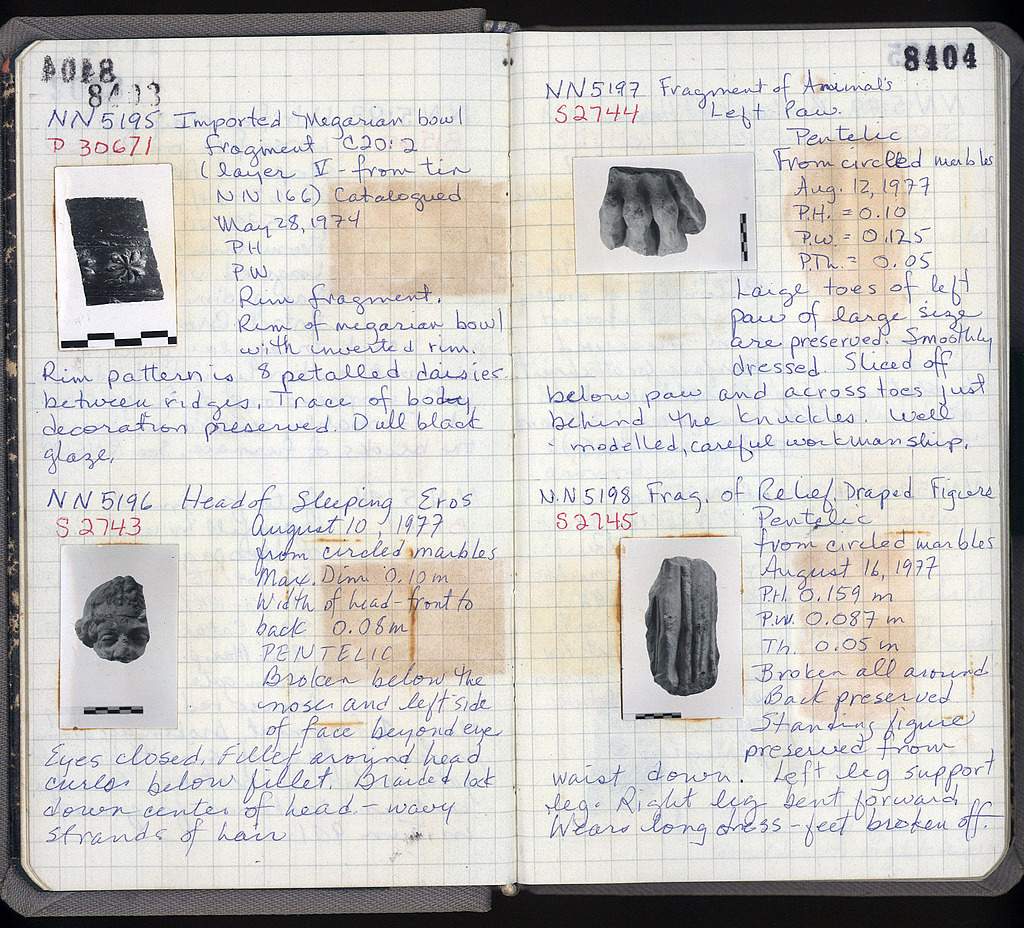 8404
8403
NN 5195 Imported Megarian bowl
P 30671 fragment C20:2
(layer V - from tin
NN 166) Catalogued
May 28, 1974
PH
PW
Rim fragment.
Rim of megarian bowl
with inverted rim.
Rim pattern is 8 petalled daisies
between ridges. Trace of body
decoration preserved. Dull black
glaze.
NN 5196 Head of Sleeping Eros
S 2743 August 10, 1977
from circled marbles
Max. Dim 0.10 m
Width of head - front to
back 0.08 m
PENTELIC
Broken below the
nose and left side
of face beyond eye
Eyes closed. Fillet around head
curls below fillet. Braided lock
down center of head - wavy
strands of hair
8404
NN 5197 Fragment of Animal's
S 2744 Left Paw.
Pentelic
From circled marbles
Aug. 12, 1977
P.H. = 0.10
P.W. = 0.125
P.Th. = 0.05
Large toes of left
paw of large size
are preserved. Smoothly
dressed. Sliced off
below paw and across toes just
behind the knuckles. Well
modelled, careful workmanship.
NN 5198 Frag. of Relief, Draped Figure
S 2745 Pentelic
from circled marbles
August 16, 1977
P.H. 0.159 m
P.W. 0.087 m
Th. 0.05 m
Broken all around
Back preserved
Standing figure
preserved from
waist down. Left leg support
leg. Right leg bent forward
Wears long dress - feet broken off.